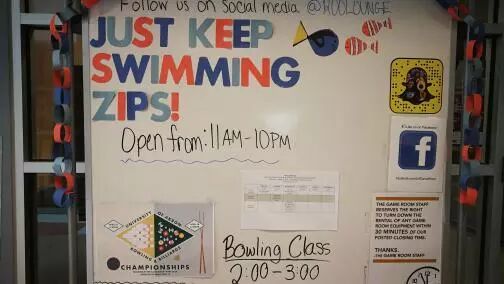 Follow us on Social media @ROOLOUNGE
JUST KEEP
SWIMMING
ZIPS!
Open from: 11AM-10PM
UNIVERSITY OF AKRON
BOWLING & BILLIARDS
CHAMPIONSHIPS
Bowling Class
2:00-3:00
THE GAME ROOM STAFF
RESERVES THE RIGHT
TO TURN DOWN THE
RENTAL OF ANY GAME
ROOM EQUIPMENT WITHIN
30 MINUTES OF OUR
POSTED CLOSING TIME.
THANKS.
-THE GAME ROOM STAFF